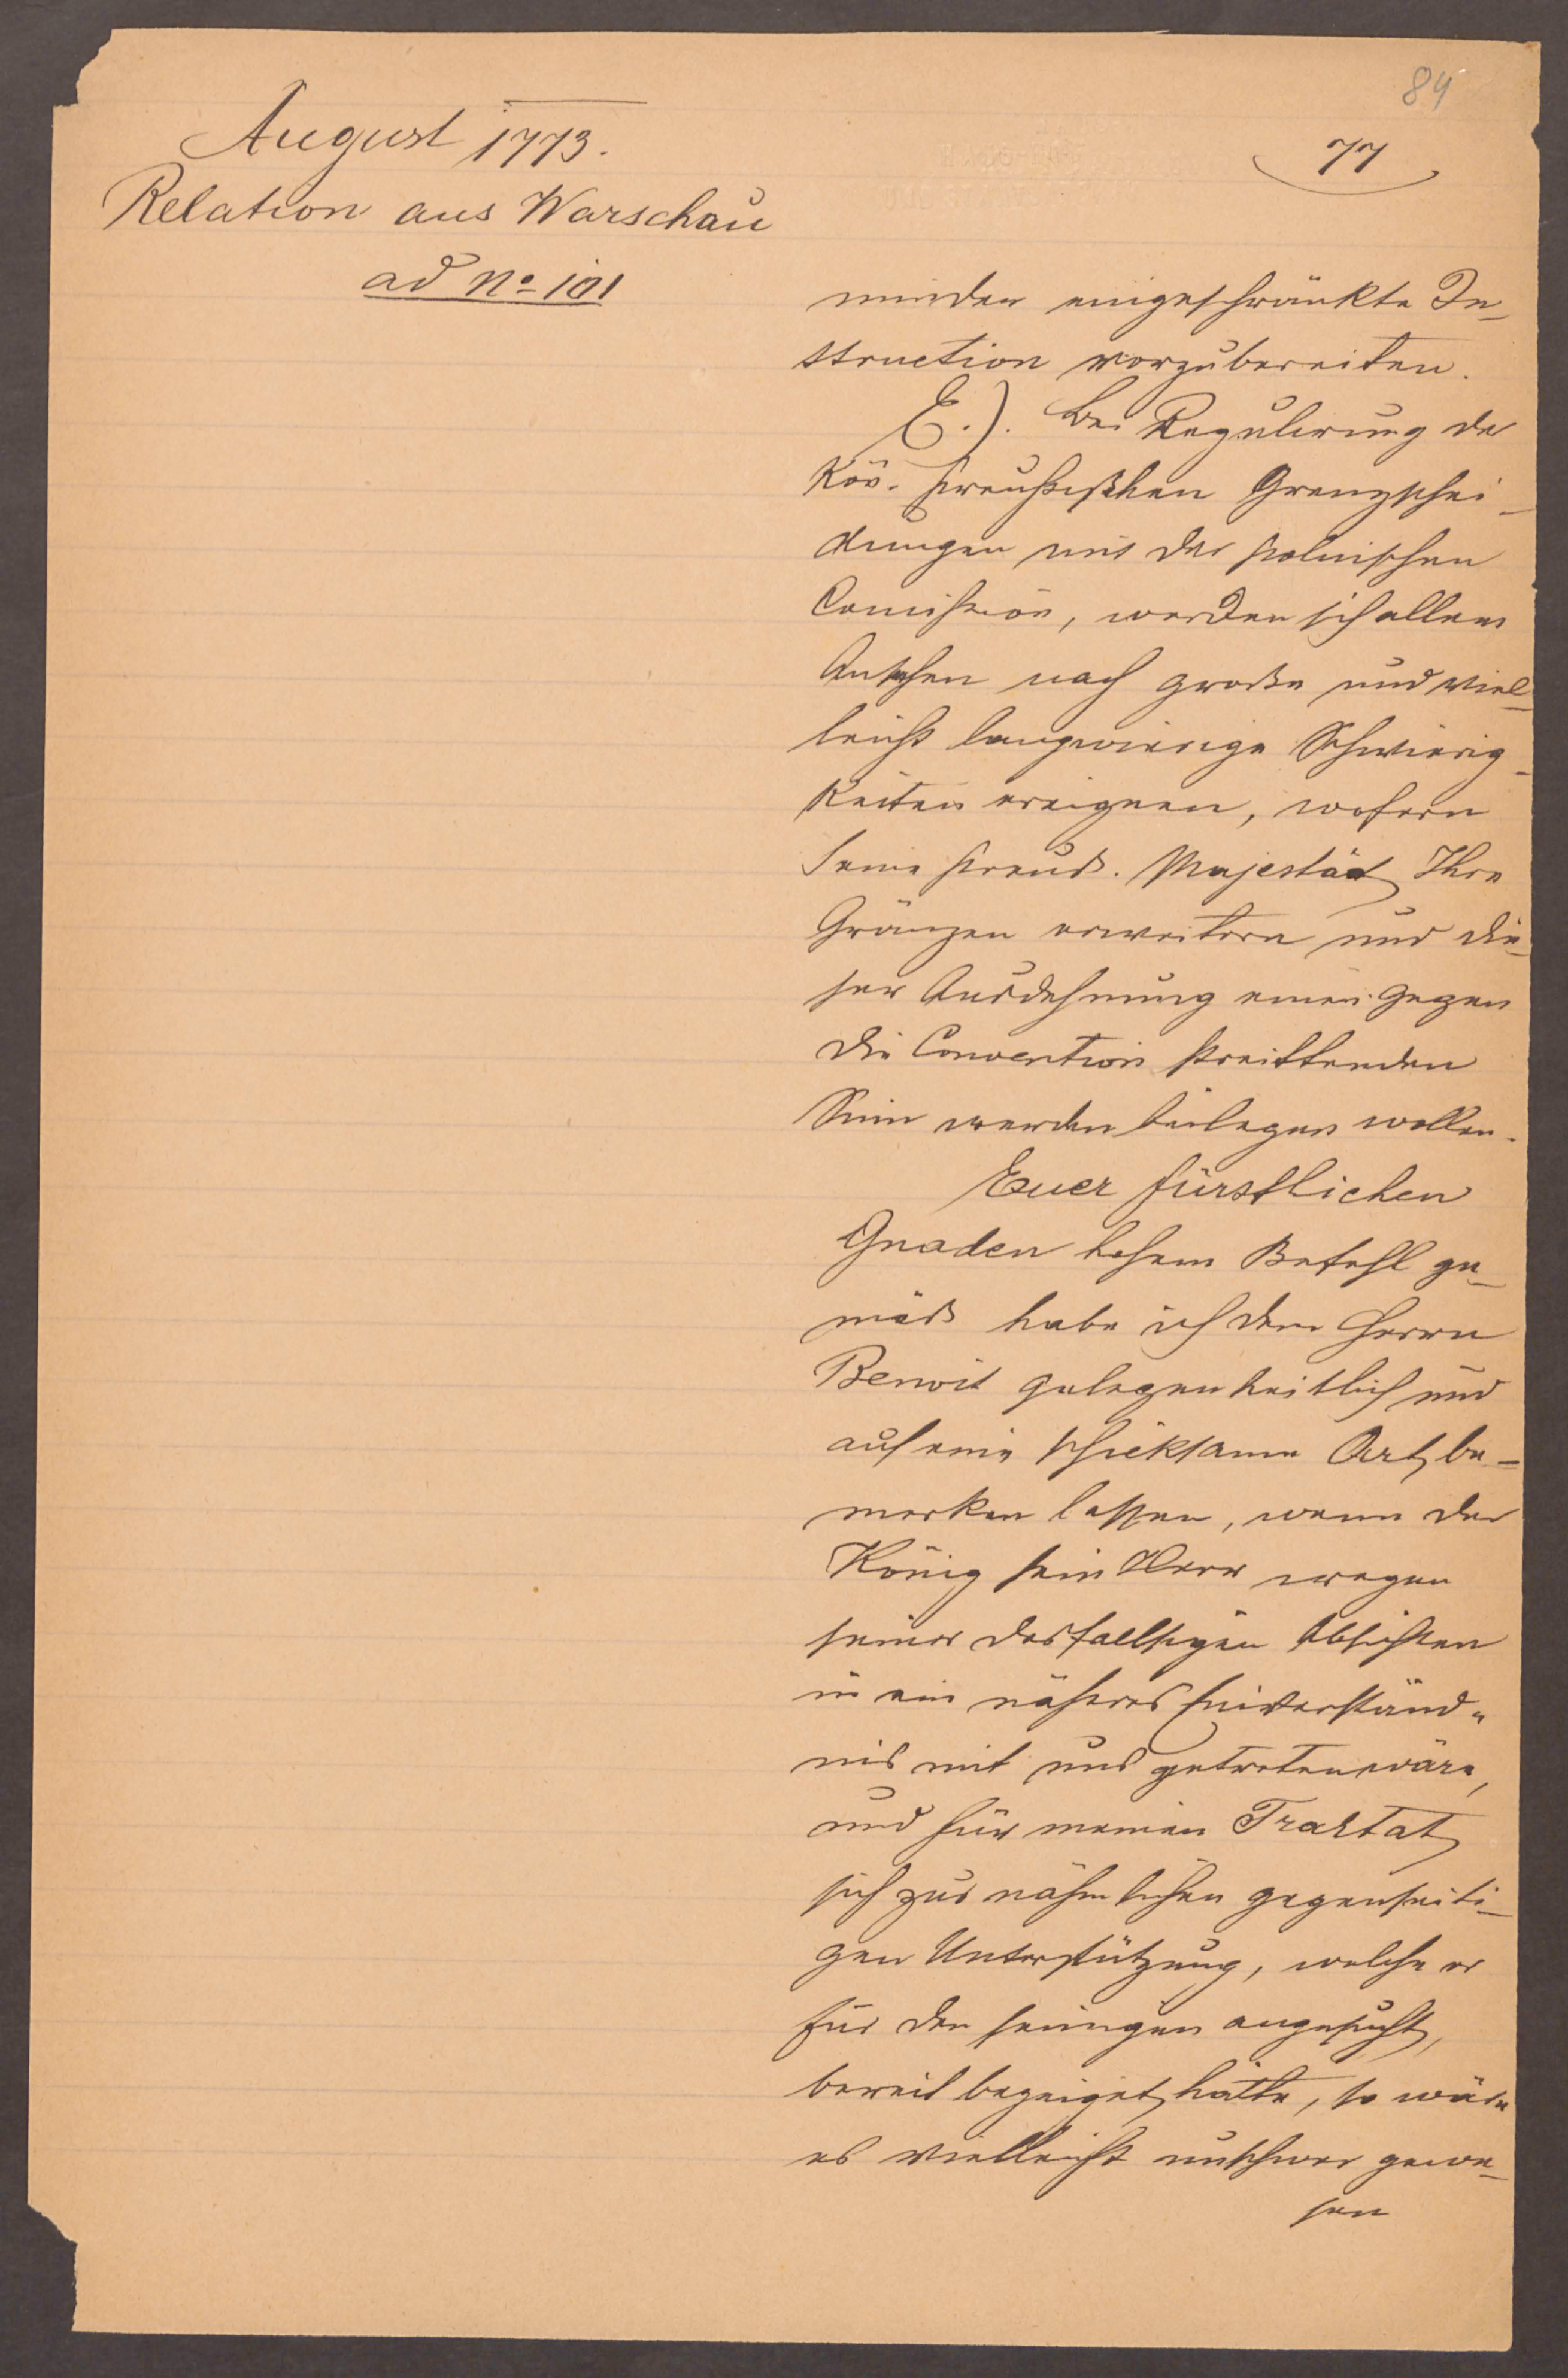 84
77
August 1773.
Relation aus Warschau
ad No 101
minder eingeschränkte In-
struction vorzubereiten.
E.). Bei Regulirung der
Kön. preußischen Grenzschei-
dungen mit der polnischen
Comission, werden sich allem
Ansehen nach große und viel-
leicht langwierige Schwierig-
keiten ereignen, wofern
Seine preuß. Majestät Ihre
Gränzen erweitern und die-
ser Ausdehnung einen gegen
die Convention streittenden
Sinn werden beilegen wollen.
Euer fürstlichen
Gnaden hohem Befehl ge-
mäß habe ich dem Herrn
Benoit gelegenheitlich und
auf eine schicksame Art be-
merken lassen, wenn der
König sein Herr wegen
seiner desfallsigen Absichten
in ein näheres Einverständ-
nis mit uns getreten wäre,
und für meinen Traktat
sich zur nähmlichen gegenseiti-
gen Unterstützung, welche er
für den seinigen angesucht,
bereit bezeiget hätte, so wäre
es vielleicht unschwer gewe-
sen